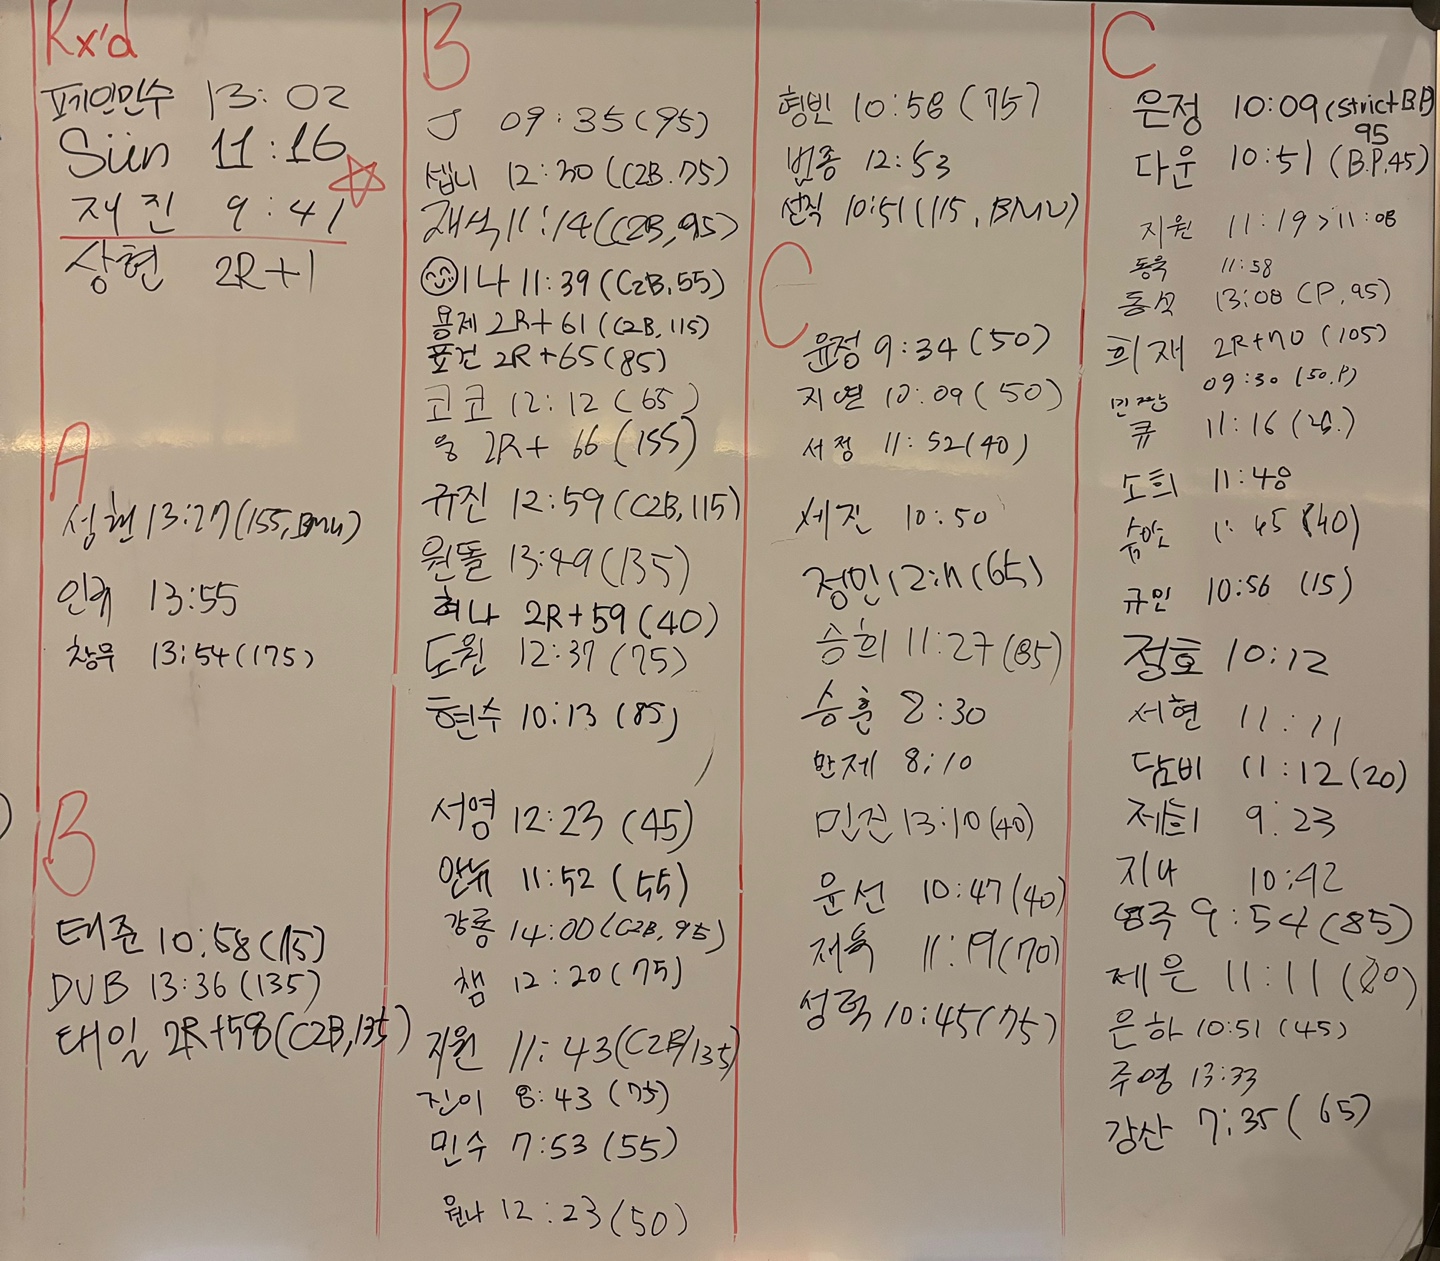 Rx'd
페인민수 13:02
Sün 11:16
재진 9:41
상현 2R+1
A
성현 13:27(155,BMU)
인퀴 13:55
창무 13:54(175)
B
태준 10:58(75)
DUB 13:36(135)
태일 2R+58(C2B,135)
B
J 09:35(95)
셉니 12:30(C2B.75)
재석 11:14(C2B,95)
하나 11:39(C2B,55)
용제 2R+61(C2B,115)
표건 2R+65(85)
코코 12:12(65)
웅 2R+66(155)
규진 12:59(C2B,115)
원돌 13:49(135)
혀나 2R+59(40)
도원 12:37(75)
현수 10:13(85)
서영 12:23(45)
안뉴 11:52(55)
강룡 14:00(C2B,95)
챔 12:20(75)
지원 11:43(C2B/135)
진이 8:43(75)
민수 7:53(55)
원나 12:23(50)
형빈 10:58(75)
범종 12:53
선직 10:51(115,BMU)
C
윤정 9:34(50)
지연 10:09(50)
서정 11:52(40)
세진 10:50
정민 12:11(65)
승희 11:27(85)
승훈 8:30
반제 8:10
민진 13:10(40)
윤선 10:47(40)
재욱 11:19(70)
성혁 10:45(75)
C
은정 10:09(strict BP)
95
다운 10:51(B.P,45)
지원 11:19>11:08
동욱 11:58
동석 13:08(P,95)
희재 2R+70(105)
09:30(50,P)
민짱
큐 11:16
소희 11:48
45(40)
규민 10:56(15)
정호 10:12
서현 11:11
담비 11:12(20)
제희 9:23
지나 10:42
명주 9:54(85)
제은 11:11
은하 10:51(45)
주영 13:33
강산 7:35(65)